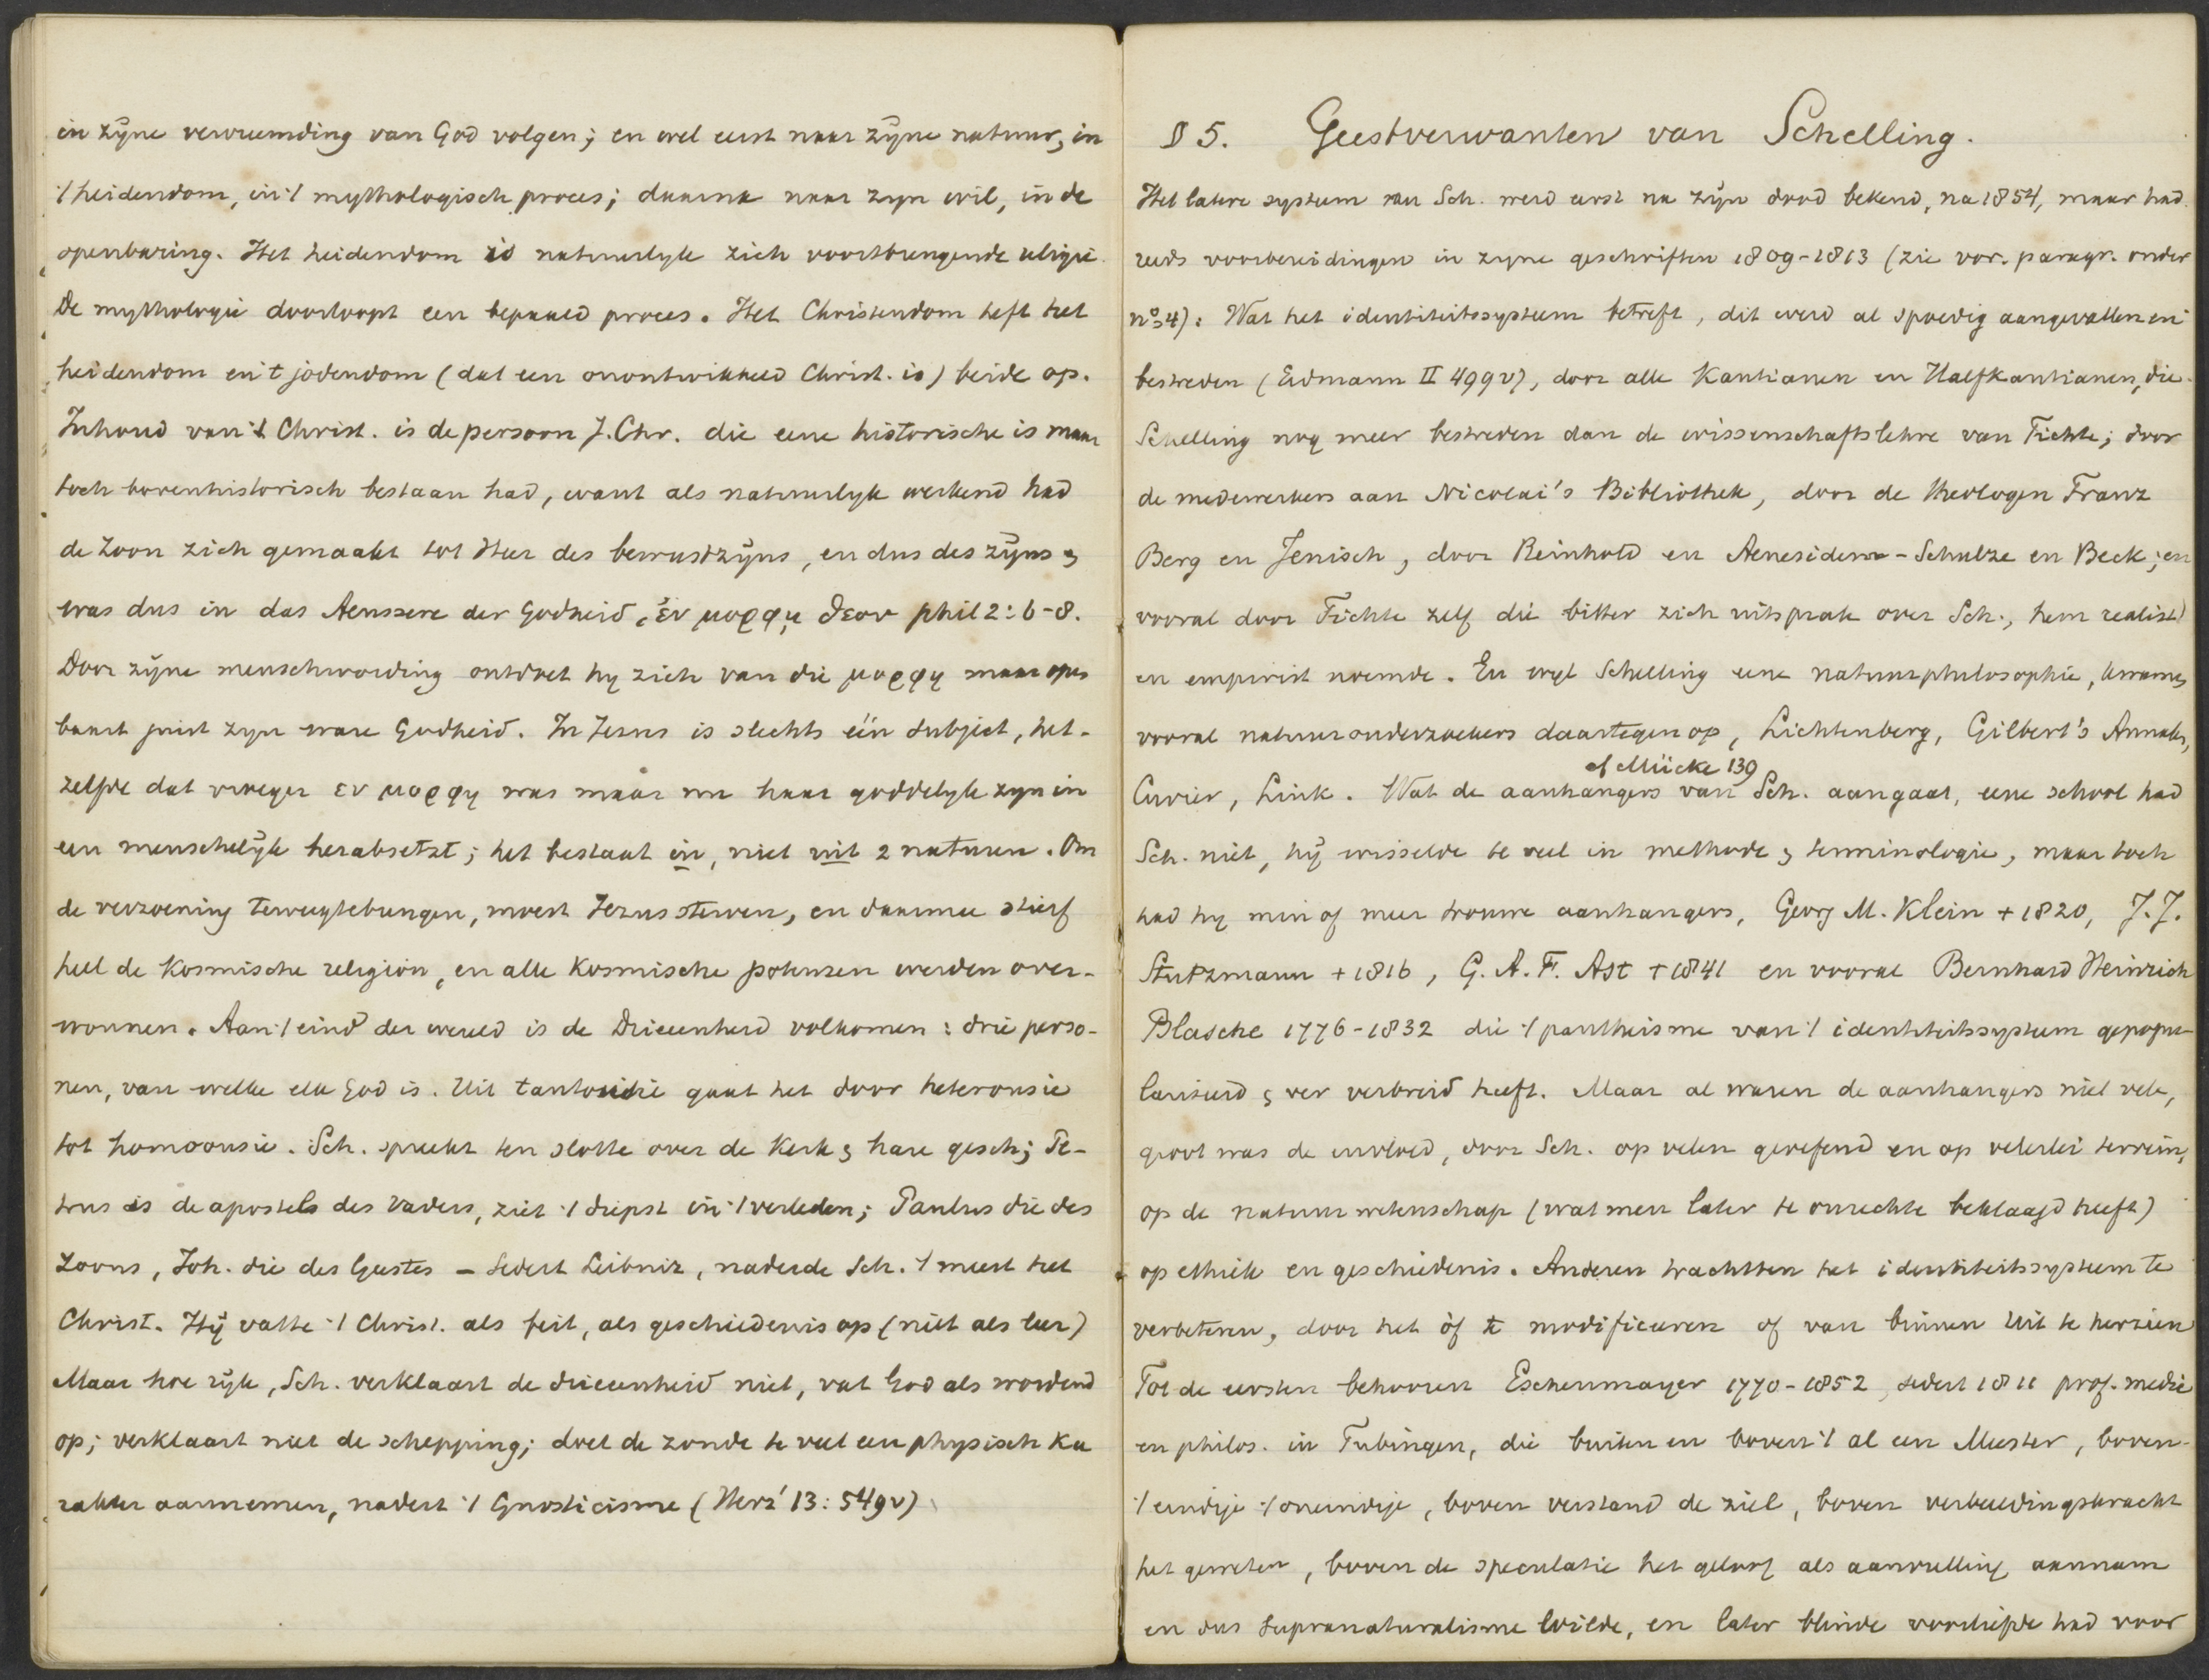 in zijne vervreemding van God volgen; en wel eerst naar zijne natuur, in
't heidendom, in 't mythologisch proces; daarna naar zijn wil, in de
openbaring. Het heidendom is natuurlijk zich voortbrengende religie.
De mythologie doorloopt een bepaald proces. Het Christendom heft het
heidendom en 't jodendom (dat een onontwikkeld Christ. is) beide op.
Inhoud van 't Christ. is de persoon J. Chr. die eene historische is maar
toch bovenhistorisch bestaan had, want als natuurlijk werkend had
de Zoon zich gemaakt tot Heer des bewustzijns, en dus des zijns &
was dus in das Aeussere der Godheid, ἐν μορφῃ θεου phil 2:6-8.
Door zijne menschwording ontdoet hij zich van die μορφη maar open
baart juist zijn ware Godheid. In Jesus is slechts één subject, het-
zelfde dat vroeger εν μορφη was maar nu haar goddelijk zijn in
een menschelijk herabsetzt; het bestaat in, niet uit 2 naturen. Om
de verzoening teweegtebrengen, moest Jezus sterven, en daarmee stierf
heel de kosmische religion, en alle kosmische potenzen werden over-
wonnen. Aan 't eind der wereld is de Drieeenheid volkomen: drie perso-
nen, van welke elk God is. Uit tautousie gaat het door heterousie
tot homoousie. Sch. spreekt ten slotte over de Kerk & hare gesch; Pe-
trus is de apostels des Vaders, ziet 't diepst in 't verleden; Paulus die des
Zoons, Joh. die des Geestes - Sedert Leibniz, naderde Sch. 't meest het
Christ. Hij vatte 't Christ. als feit, als geschiedenis op (niet als leer)
Maar hoe rijk, Sch. verklaart de drieeenheid niet, vat God als wordend
op; verklaart niet de schepping; doet de zonde te veel een physisch ka
rakter aannemen, nadert 't Gnosticisme (Herz' 13:549v)
§ 5. Geestverwanten van Schelling.
Het latere systeem van Sch. werd eerst na zijn dood bekend, na 1854, maar had
reeds voorbereidingen in zijne geschriften 1809-1813 (zie vor. paragr. onder
no 4): Wat het identiteitssysteem betreft, dit werd al spoedig aangevallen en
bestreden (Erdmann II 499v), door alle Kantianen en Halfkantianen, die
Schelling nog meer bestreden dan de wissenschaftslehre van Fichte; door
de medewerkers aan Nicolai's Bibliothek, door de theologen Franz
Berg en Jenisch, door Reinhold en Aenesidem-Schulze en Beck; en
vooral door Fichte zelf die bitter zich uitsprak over Sch., hem realist
en empirist noemde. En wijl Schelling eene natuurphilosophie, kwamen
vooral natuuronderzoekers daartegen op, Lichtenberg, Gilbert's Annalen,
cf Mücke 139
Cuvier, Link. Wat de aanhangers van Sch. aangaat, eene school had
Sch. niet, hij wisselde te veel in methode & terminologie, maar toch
had hij min of meer trouwe aanhangers, Georg M. Klein + 1820, J.J.
Stutzmann + 1816, G.A.F. Ast + 1841 en vooral Bernhard Heinrich
Blasche 1776-1832 die 't pantheisme van 't identiteitssysteem gepopu-
lariseerd & ver verbreid heeft. Maar al waren de aanhangers niet vele,
groot was de invloed, door Sch. op velen geoefend en op velerlei terrein,
op de natuurwetenschap (wat men later te onrechte beklaagd heeft)
op ethiek en geschiedenis. Anderen trachtten het identiteitssysteem te
verbeteren, door het òf te modificeeren of van binnen uit te herzien
Tot de eersten behooren Eschenmayer 1770-1852, sedert 1811 prof. medic
en philos. in Tubingen, die buiten en boven 't al een Meester, boven
't eindige 't oneindige, boven verstand de ziel, boven verbeeldingskracht
het geweten, boven de speculatie het geloof als aanvulling aannam
en dus supranaturalisme wilde, en later blinde voorliefde had voor